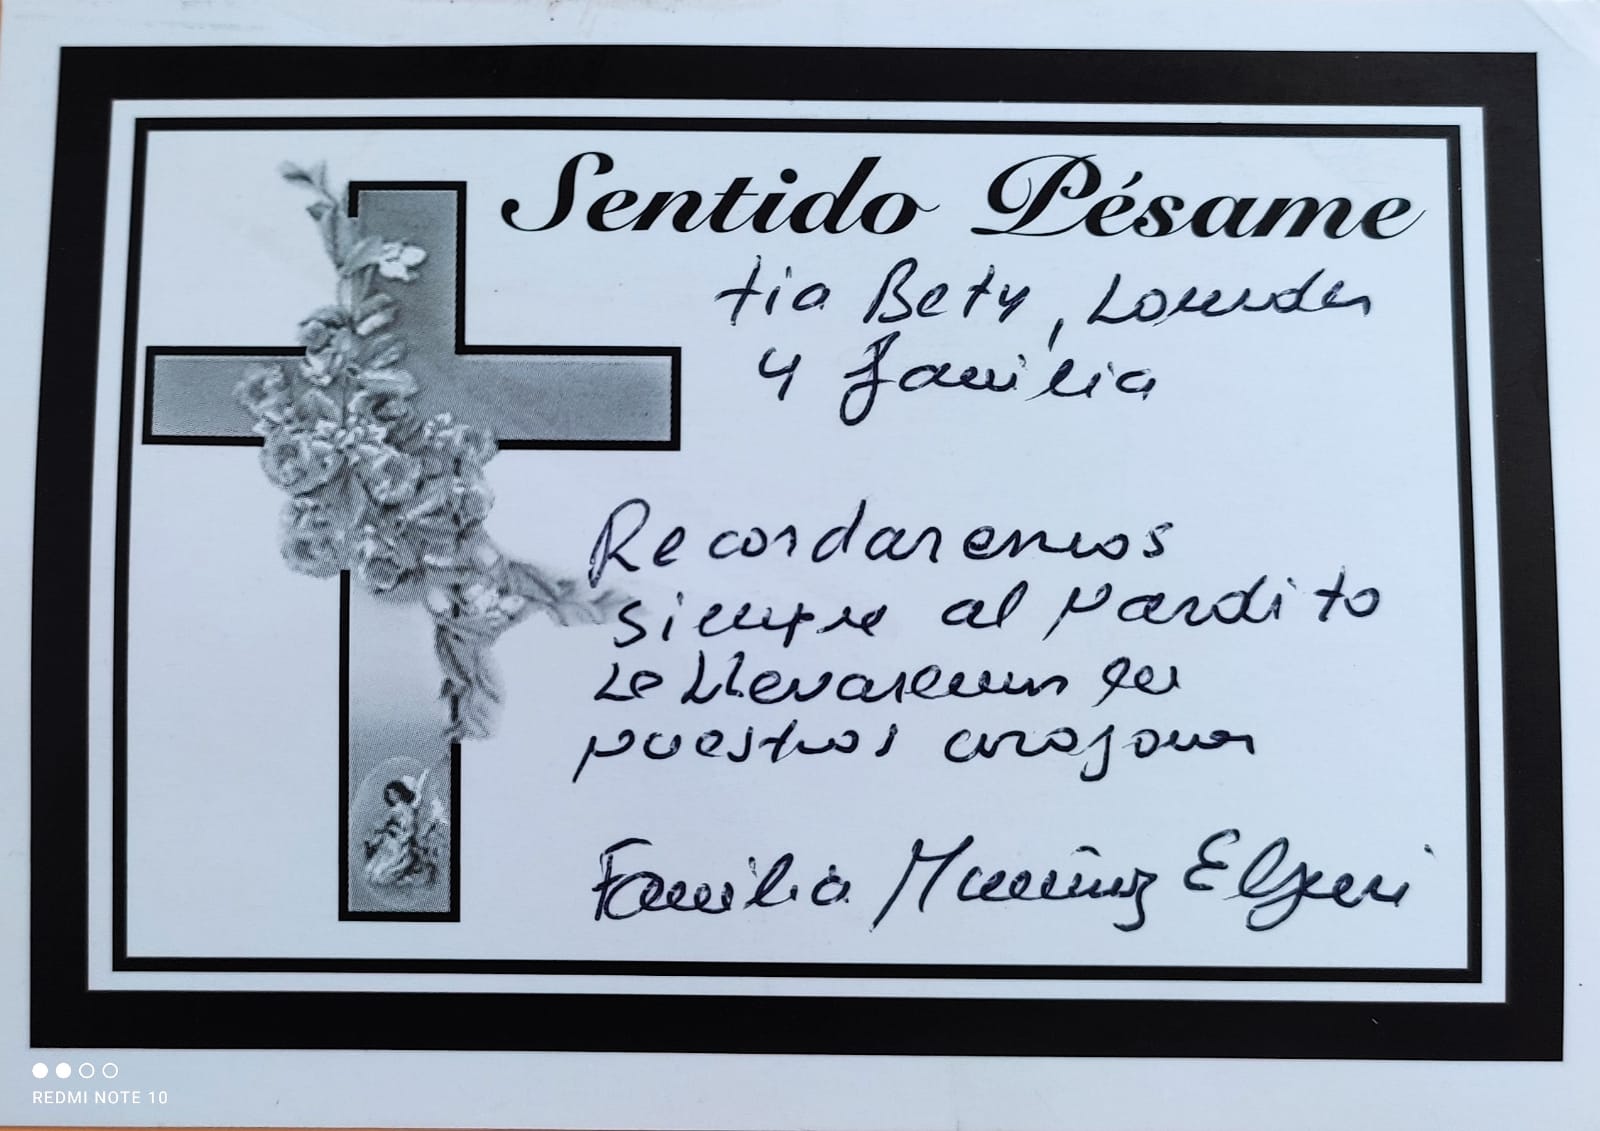 Sentido Pésame
tia Bety, Lourdes
y familia
Recordaremos
siempre al
Le llevaremos en
nuestros corazones
Familia Muñoz
REDMI NOTE 10